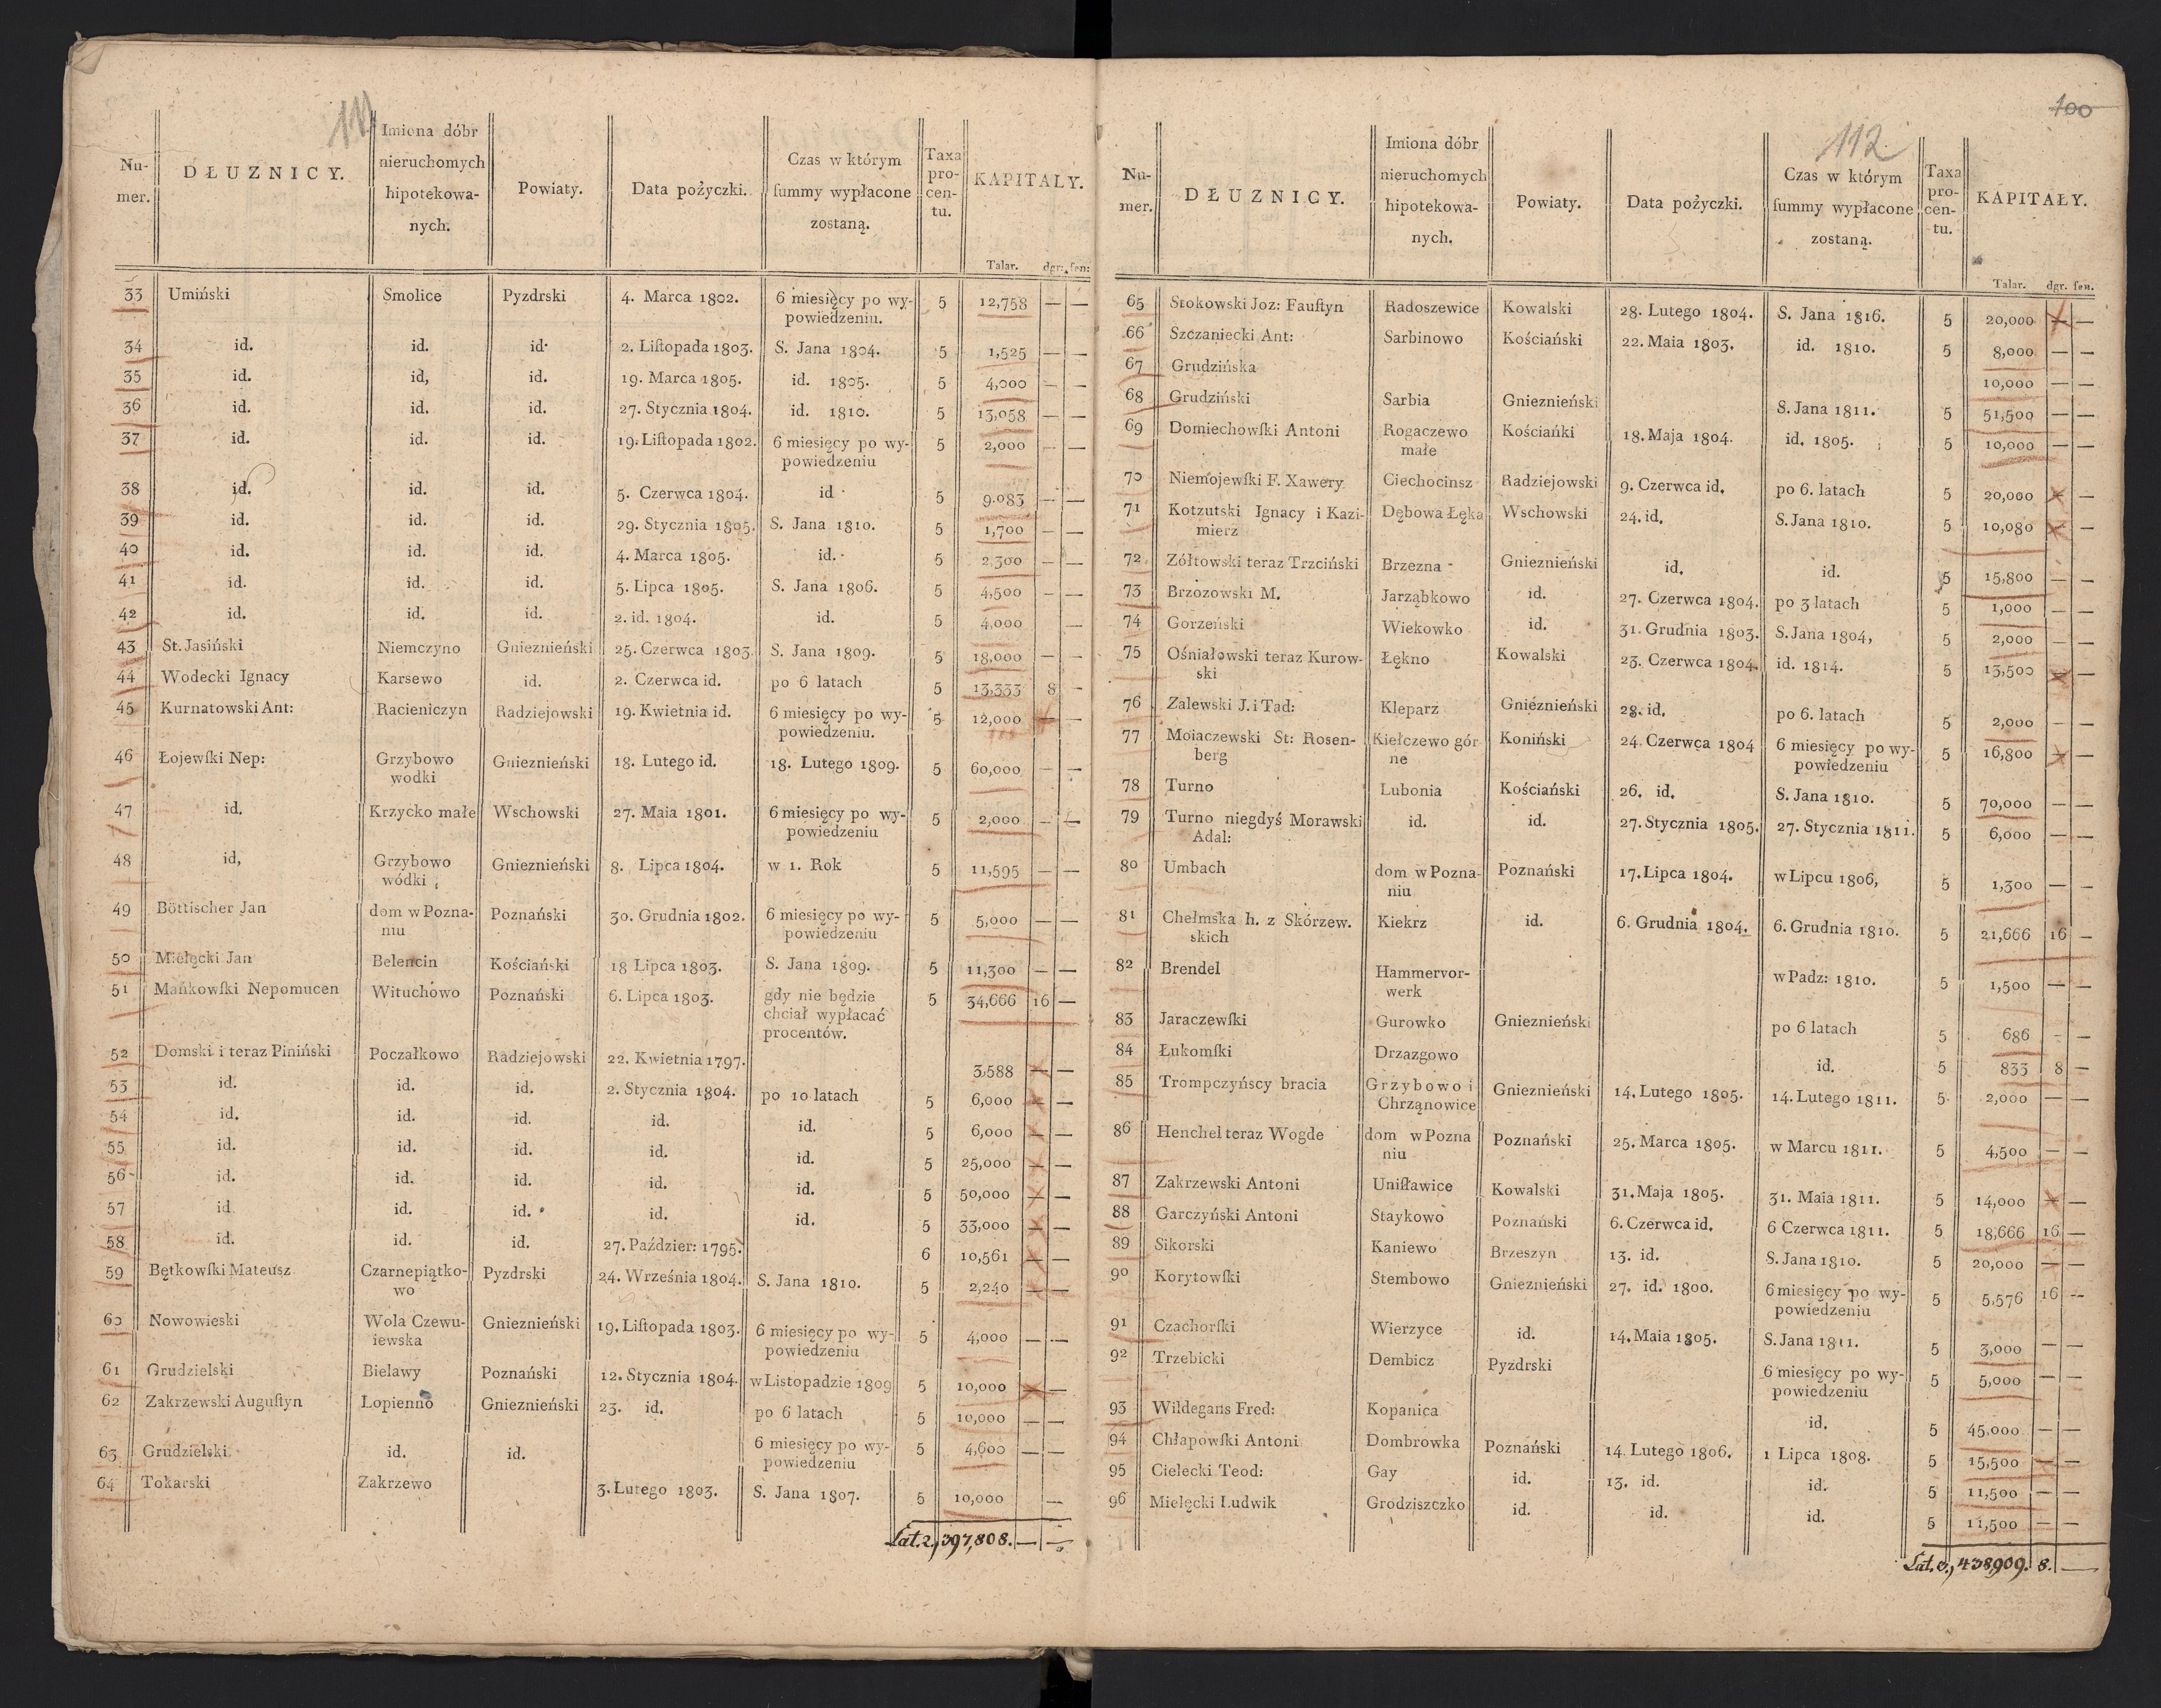 111
Nu-mer. DŁUZNICY. Imiona dóbr nieruchomych hipotekowa-nych. Powiaty. Data pożyczki. Czas w którym ſummy wypłacone zostaną. Taxa pro-cen-tu. KAPITAŁY.
Talar. dgr: fen:
33 Umiński Smolice Pyzdrski 4. Marca 1802. 6 miesięcy po wy- 5 12,758 — —
powiedzeniu.
34 id. id. id. 2. Liſtopada 1803. S. Jana 1804. 5 1,525 — —
35 id. id, id. 19. Marca 1805. id. 1805. 5 4,000 — —
36 id. id. id. 27. Stycznia 1804. id. 1810. 5 13,058 — —
37 id. id. id. 19. Liſtopada 1802. 6 miesięcy po wy- 5 2,000 — —
powiedzeniu
38 id. id. id. 5. Czerwca 1804. id 5 9,083 — —
39 id. id. id. 29. Stycznia 1805. S. Jana 1810. 5 1,700 — —
40 id. id. id. 4. Marca 1805. id. 5 2,300 — —
41 id. id. id. 5. Lipca 1805. S. Jana 1806. 5 4,500 — —
42 id. id. id. 2. id. 1804. id. 5 4,000 —
43 St. Jasiński Niemczyno Gnieznieński 25. Czerwca 1803. S. Jana 1809. 5 18,000 — —
44 Wodecki Ignacy Karsewo id. 2. Czerwca id. po 6 latach 5 13,333 8 —
45 Kurnatowski Ant: Racieniczyn Radziejowski 19. Kwietnia id. 6 miesięcy po wy- 5 12,000 — —
powiedzeniu.
46 Łojewſki Nep: Grzybowo Gnieznieński 18. Lutego id. 18. Lutego 1809. 5 60,000 — —
wodki
47 id. Krzycko małe Wschowski 27. Maia 1801. 6 miesięcy po wy- 5 2,000 — —
powiedzeniu
48 id, Grzybowo Gnieznieński 8. Lipca 1804. w 1. Rok 5 11,595 — —
wódki
49 Böttischer Jan dom w Pozna- Poznański 30. Grudnia 1802. 6 miesięcy po wy- 5 5,000 — —
niu powiedzeniu
50 Mielęcki Jan Belencin Kościański 18 Lipca 1803. S. Jana 1809. 5 11,300 — —
51 Mańkowſki Nepomucen Wituchowo Poznański 6. Lipca 1803. gdy nie będzie 5 34,666 16 —
chciał wypłacać
procentów.
52 Domski i teraz Piniński Począłkowo Radziejowski 22. Kwietnia 1797. 3,588 — —
53 id. id. id. 2. Stycznia 1804. po 10 latach 5 6,000 — —
54 id. id. id. id. id. 5 6,000 — —
55 id. id. id. id. id. 5 25,000 — —
56 id. id. id. id. id. 5 50,000 — —
57 id. id. id. id. id. 5 33,000 — —
58 id. id. id. 27. Paździer: 1795. 6 10,561 — —
59 Bętkowſki Mateusz Czarnepiątko- Pyzdrski 24. Września 1804. S. Jana 1810. 5 2,240 — —
wo
60 Nowowieski Wola Czewu- Gnieznieński 19. Liſtopada 1803. 6 miesięcy po wy- 5 4,000 — —
iewska powiedzeniu
61 Grudzielski Bielawy Poznański 12. Stycznia 1804. w Listopadzie 1809 5 10,000 — —
62 Zakrzewski Auguſtyn Lopienno Gnieznieński 23. id. po 6 latach 5 10,000 — —
63 Grudzielski id. id. 6 miesięcy po wy- 5 4,600 — —
powiedzeniu
64 Tokarski Zakrzewo 3. Lutego 1803. S. Jana 1807. 5 10,000 —
Lat. 2., 397,808. — —
100
112
Nu-mer. DŁUZNICY. Imiona dóbr nieruchomych hipotekowa-nych. Powiaty. Data pożyczki. Czas w którym ſummy wypłacone zostaną. Taxa pro-cen-tu. KAPITAŁY.
Talar. dgr. fen.
65 Stokowski Joz: Fauſtyn Radoszewice Kowalski 28. Lutego 1804. S. Jana 1816. 5 20,000 — —
66 Szczaniecki Ant: Sarbinowo Kościański 22. Maia 1803. id. 1810. 5 8,000 — —
67 Grudzińska 10,000 — —
68 Grudziński Sarbia Gnieznieński S. Jana 1811. 5 51,500 — —
69 Domiechowſki Antoni Rogaczewo Kościańki 18. Maja 1804. id. 1805. 5 10,000 — —
małe
70 Niemojewſki F. Xawery Ciechocinsz Radziejowski 9. Czerwca id. po 6. latach 5 20,000 — —
71 Kotzutski Ignacy i Kazi- Dębowa Łęka Wschowski 24. id. S. Jana 1810. 5 10,080 — —
mierz
72 Zółtowski teraz Trzciński Brzezna Gnieznieński id. id. 5 15,800 — —
73 Brzozowski M. Jarząbkowo id. 27. Czerwca 1804. po 3 latach 5 1,000 — —
74 Gorzeński Wiekowko id. 31. Grudnia 1803. S. Jana 1804, 5 2,000 — —
75 Ośniałowski teraz Kurow- Łękno Kowalski 23. Czerwca 1804. id. 1814. 5 13,500 — —
ski
76 Zalewski J. i Tad: Kleparz Gnieznieński 28. id. po 6. latach 5 2,000 — —
77 Moiaczewski St: Rosen- Kiełczewo gór- Koniński 24. Czerwca 1804 6 miesięcy po wy- 5 16,800 — —
berg ne powiedzeniu
78 Turno Lubonia Kościański 26. id. S. Jana 1810. 5 70,000 — —
79 Turno niegdyś Morawski id. id. 27. Stycznia 1805. 27. Stycznia 1811. 5 6,000 — —
Adal:
80 Umbach dom w Pozna- Poznański 17. Lipca 1804. w Lipcu 1806, 5 1,300 — —
niu
81 Chełmska h. z Skórzew. Kiekrz id. 6. Grudnia 1804. 6. Grudnia 1810. 5 21,666 16 —
skich
82 Brendel Hammervor- w Padz: 1810. 5 1,500 — —
werk
83 Jaraczewſki Gurowko Gnieznieński po 6 latach 5 686 — —
84 Łukomſki Drzazgowo id. 5 833 8 —
85 Trompczyńscy bracia Grzybowo i Gnieznieński 14. Lutego 1805. 14. Lutego 1811. 5 2,000 — —
Chrząnowice
86 Henchel teraz Wogde dom w Pozna Poznański 25. Marca 1805. w Marcu 1811. 5 4,500 — —
niu
87 Zakrzewski Antoni Uniſławice Kowalski 31. Maja 1805. 31. Maia 1811. 5 14,000 — —
88 Garczyński Antoni Staykowo Poznański 6. Czerwca id. 6 Czerwca 1811. 5 18,666 16 —
89 Sikorski Kaniewo Brzeszyn 13. id. S. Jana 1810. 5 20,000 — —
90 Korytowſki Stembowo Gnieznieński 27. id. 1800. 6 miesięcy po wy- 5 5,576 16 —
powiedzeniu
91 Czachorſki Wierzyce id. 14. Maia 1805. S. Jana 1811. 5 3,000 — —
92 Trzebicki Dembicz Pyzdrski 6 miesięcy po wy- 5 5,000 — —
powiedzeniu
93 Wildegans Fred: Kopanica id. 5 45,000 — —
94 Chłapowſki Antoni Dombrowka Poznański 14. Lutego 1806. 1 Lipca 1808. 5 15,500 — —
95 Cielecki Teod: Gay id. 13. id. id. 5 11,500 — —
96 Mielęcki Ludwik Grodziszczko id. id. id. 5 11,500 — —
Lat. 3., 438,909. 8. —